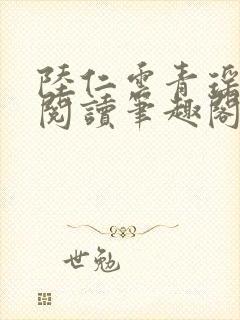 陸仁雲青瑤
閱讀筆趣閣
世勉